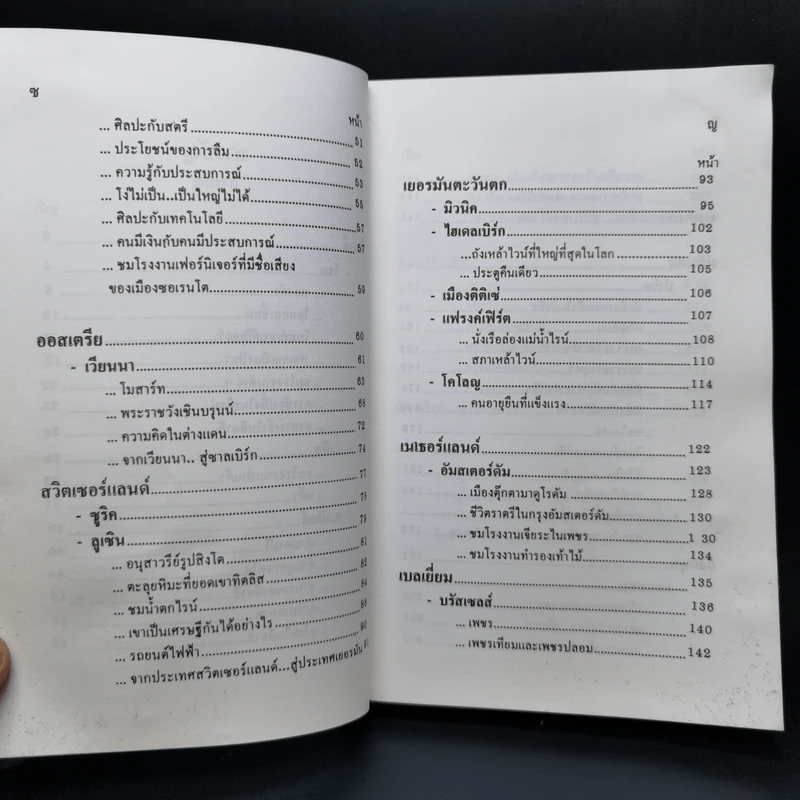 ซ
หน้า
... ศิลปะกับสตรี 51
... ประโยชน์ของการลืม 52
... ความรู้กับประสบการณ์ 53
... โง่ไม่เป็น...เป็นใหญ่ไม่ได้ 55
... ศิลปะกับเทคโนโลยี 57
... คนมีเงินกับคนมีประสบการณ์ 57
... ชมโรงงานเฟอร์นิเจอร์ที่มีชื่อเสียง
ของเมืองซอเรนโต 59
ออสเตรีย 60
- เวียนนา 61
... โมสาร์ท 63
... พระราชวังเชินบรุนน์ 68
... ความคิดในต่างแดน 72
... จากเวียนนา.. สู่ซาลเบิร์ก 74
สวิตเซอร์แลนด์ 77
- ซูริค 78
- ลูเซิน 79
... อนุสาวรีย์รูปสิงโต 81
... ตะลุยหิมะที่ยอดเขาทิตลิส 82
... ชมน้ำตกไรน์ 84
... เขาเป็นเศรษฐีกันได้อย่างไร 88
... รถยนต์ไฟฟ้า 90
...จากประเทศสวิตเซอร์แลนด์...สู่ประเทศเยอรมัน
ญ
หน้า
เยอรมันตะวันตก 93
- มิวนิค 95
- ไฮเดลเบิร์ก 102
...ถังเหล้าไวน์ที่ใหญ่ที่สุดในโลก 103
... ประตูคืนเดียว 105
- เมืองติติเซ่ 106
- แฟรงค์เฟิร์ต 107
... นั่งเรือล่องแม่น้ำไรน์ 108
... สภาเหล้าไวน์ 110
- โคโลญ 114
... คนอายุยืนที่แข็งแรง 117
เนเธอร์แลนด์ 122
- อัมสเตอร์ดัม 123
... เมืองตุ๊กตามาดูโรดัม 128
... ชีวิตราตรีในกรุงอัมสเตอร์ดัม 130
... ชมโรงงานเจียระไนเพชร 1 30
... ชมโรงงานทำรองเท้าไม้ 134
เบลเยี่ยม 135
- บรัสเซลส์ 136
... เพชร 140
... เพชรเทียมและเพชรปลอม 142